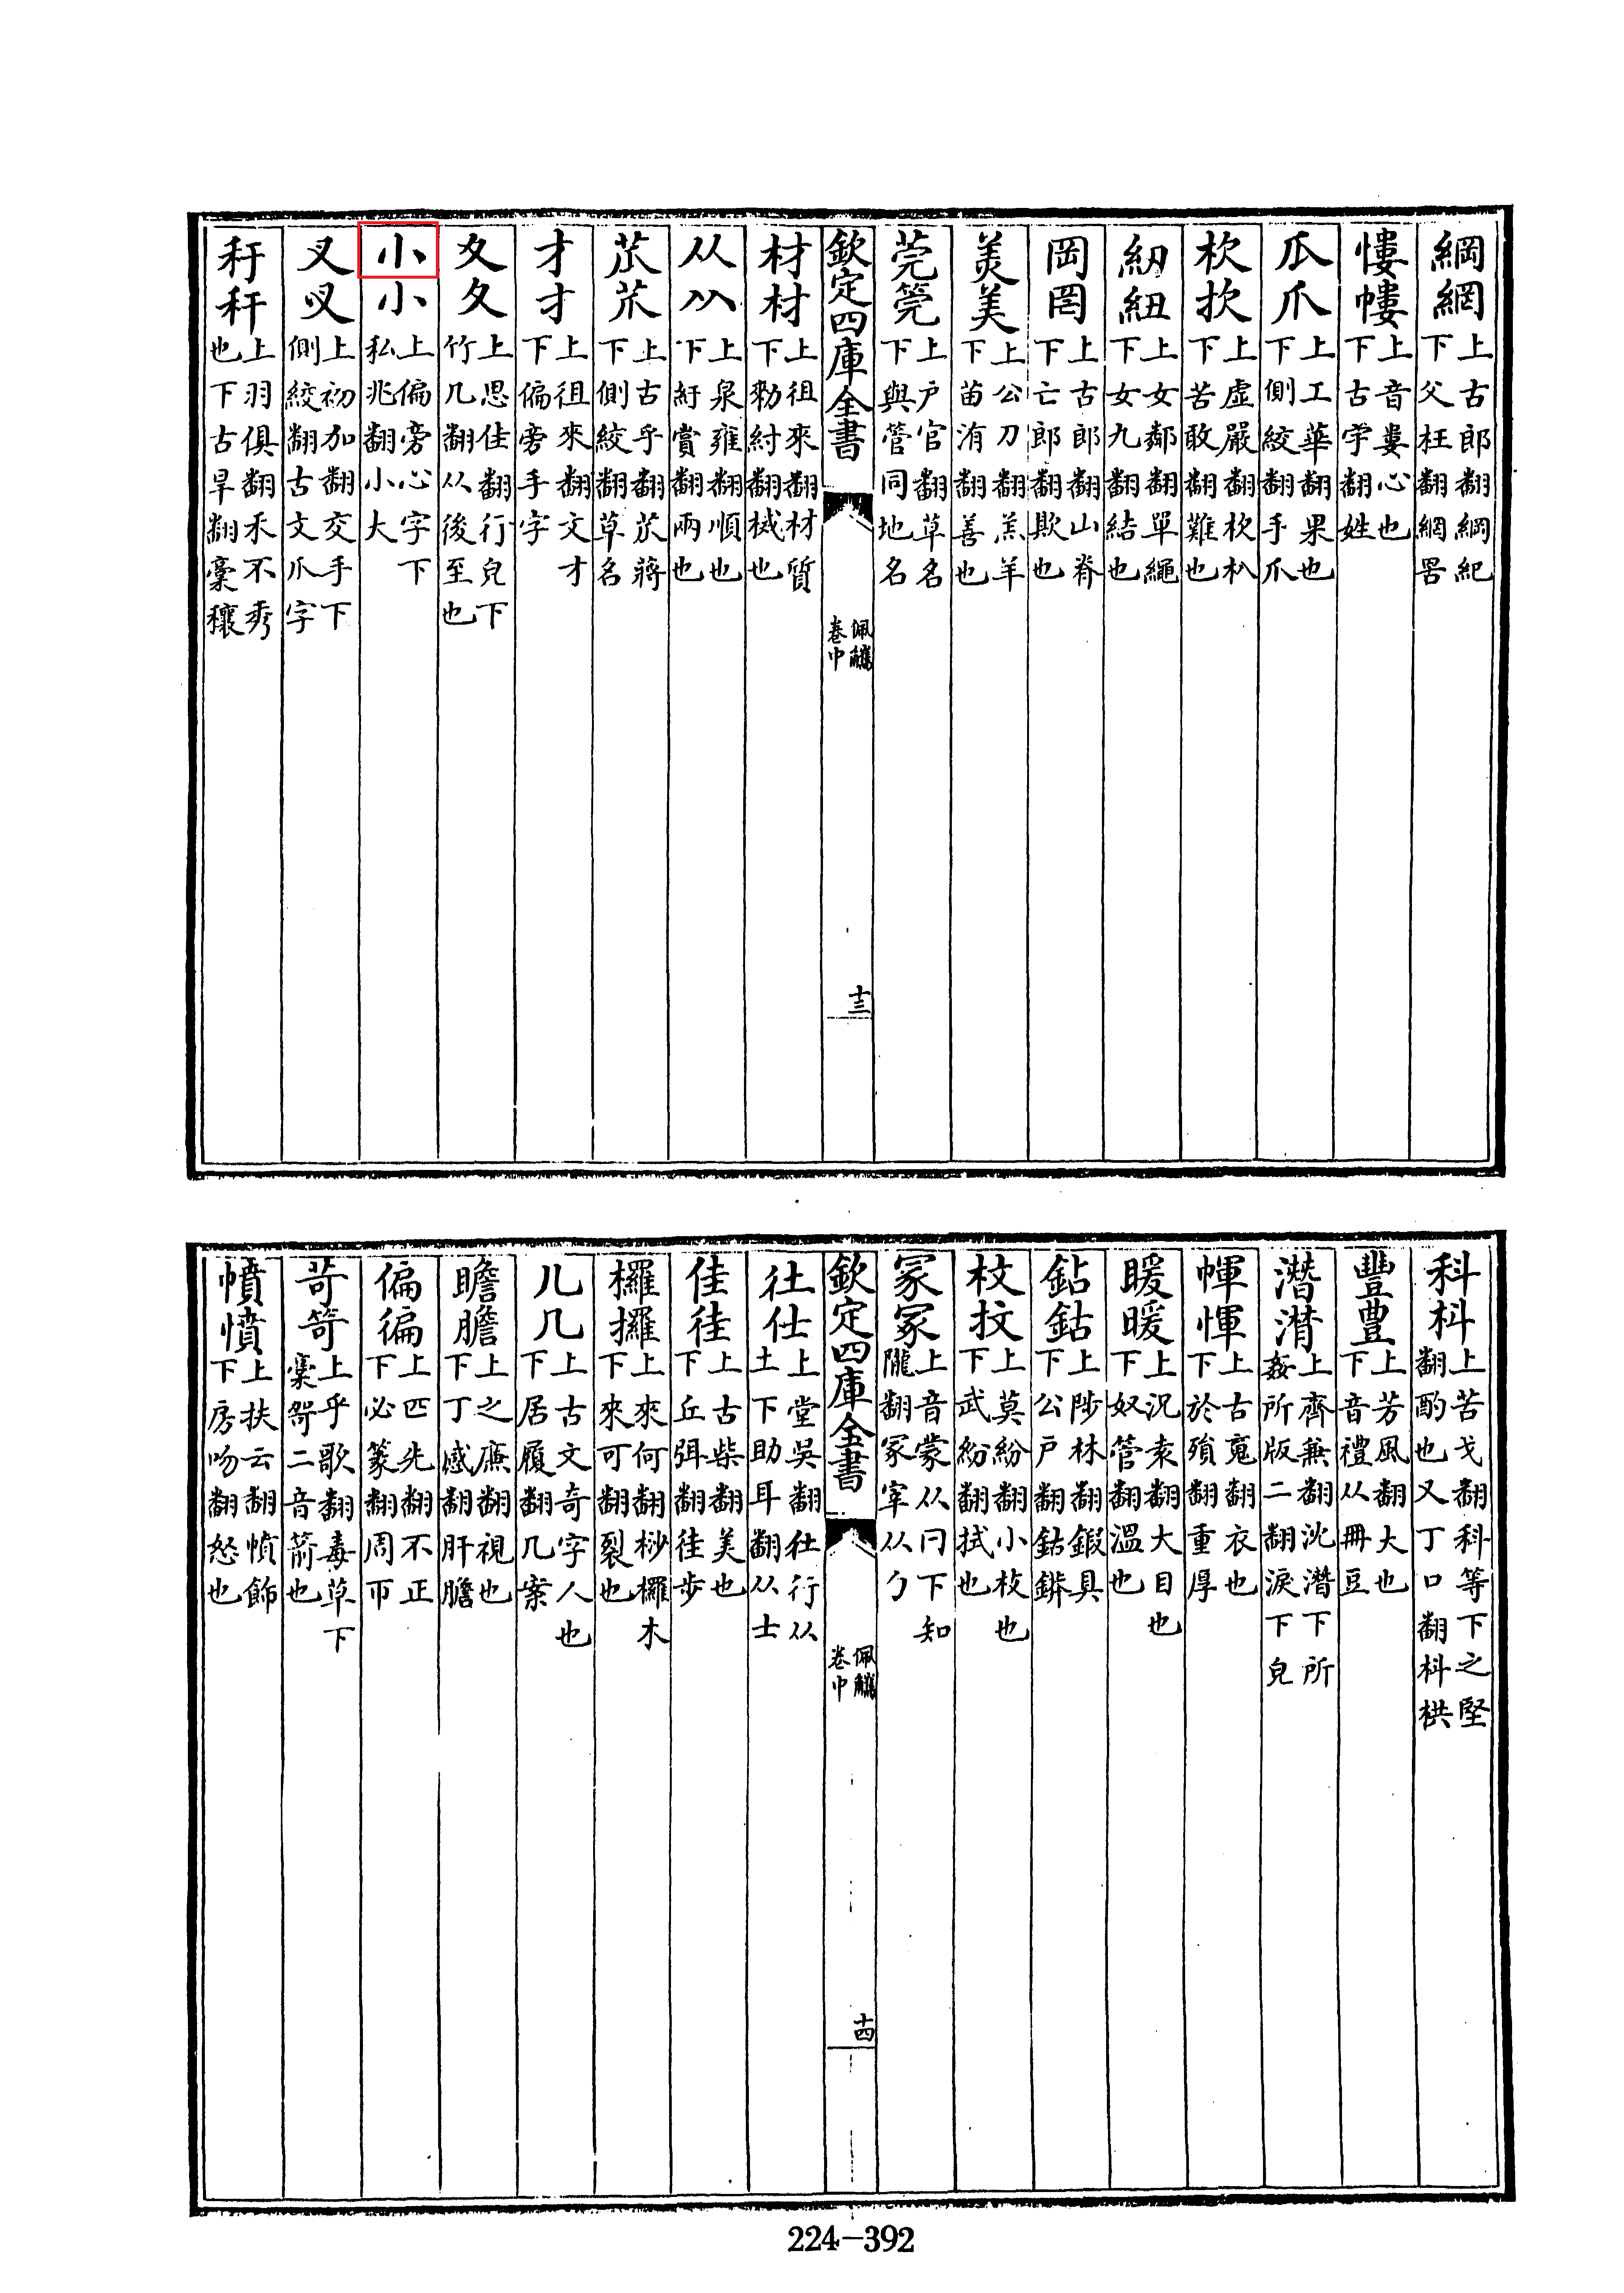 綱網上古郎翻綱紀下父枉翻網罟
慺㡞上音婁心也下古学翻姓
瓜爪上工華翻果也下側絞翻手爪
杴扻上虛嚴翻杴杁下苦敢翻難也
紉紐上女鄰翻單繩下女九翻結也
岡罔上古郎翻山脊下亡郎翻欺也
羙美上公刀翻羔羊下苗洧翻善也
莞筦上户官翻草名下與管同地名
欽定四庫全書
佩觿卷中
十三
材材上徂來翻材質下勑紂翻械也
从从上泉雍翻順也下紆賞翻兩也
苽苽上古乎翻苽蔣下側絞翻草名
才才上徂來翻文才下偏旁手字
夊夂上思隹翻行皃下竹几翻从後至也
小小上偏旁心字下私兆翻小大
叉叉上初加翻交手下側絞翻古文爪字
秆秆上羽俱翻禾不秀也下古旱翻稾穰
科枓上苦戈翻科等下之堅翻酌也又丁口翻枓栱
豐豊上芳風翻大也下音禮从冊豆
潛潸上齊兼翻沈潛下所姦所版二翻淚下皃
㡓惲上古䰟翻衣也下於殞翻重厚
暖暖上況袁翻大目也下奴管翻溫也
鉆鈷上陟林翻鍜具下公戶翻鈷鉧
杖抆上莫紛翻小枝也下武紛翻拭也
冡冢上音蒙从冃下知隴翻冢宰从勹
欽定四庫全書
佩觿卷中
十四
社仕上堂吳翻社行从土下助耳翻从士
佳徍上古柴翻美也下丘弭翻徍步
欏攞上來何翻桫欏木下來可翻裂也
儿几上古文奇字人也下居履翻几案
瞻膽上之廉翻視也下丁感翻肝膽
偏徧上匹兆翻不正下必篆翻周帀
苛笴上乎歌翻毒草下稾哿二音箭也
幩憤上扶云翻幩飾下房吻翻怒也
224-392